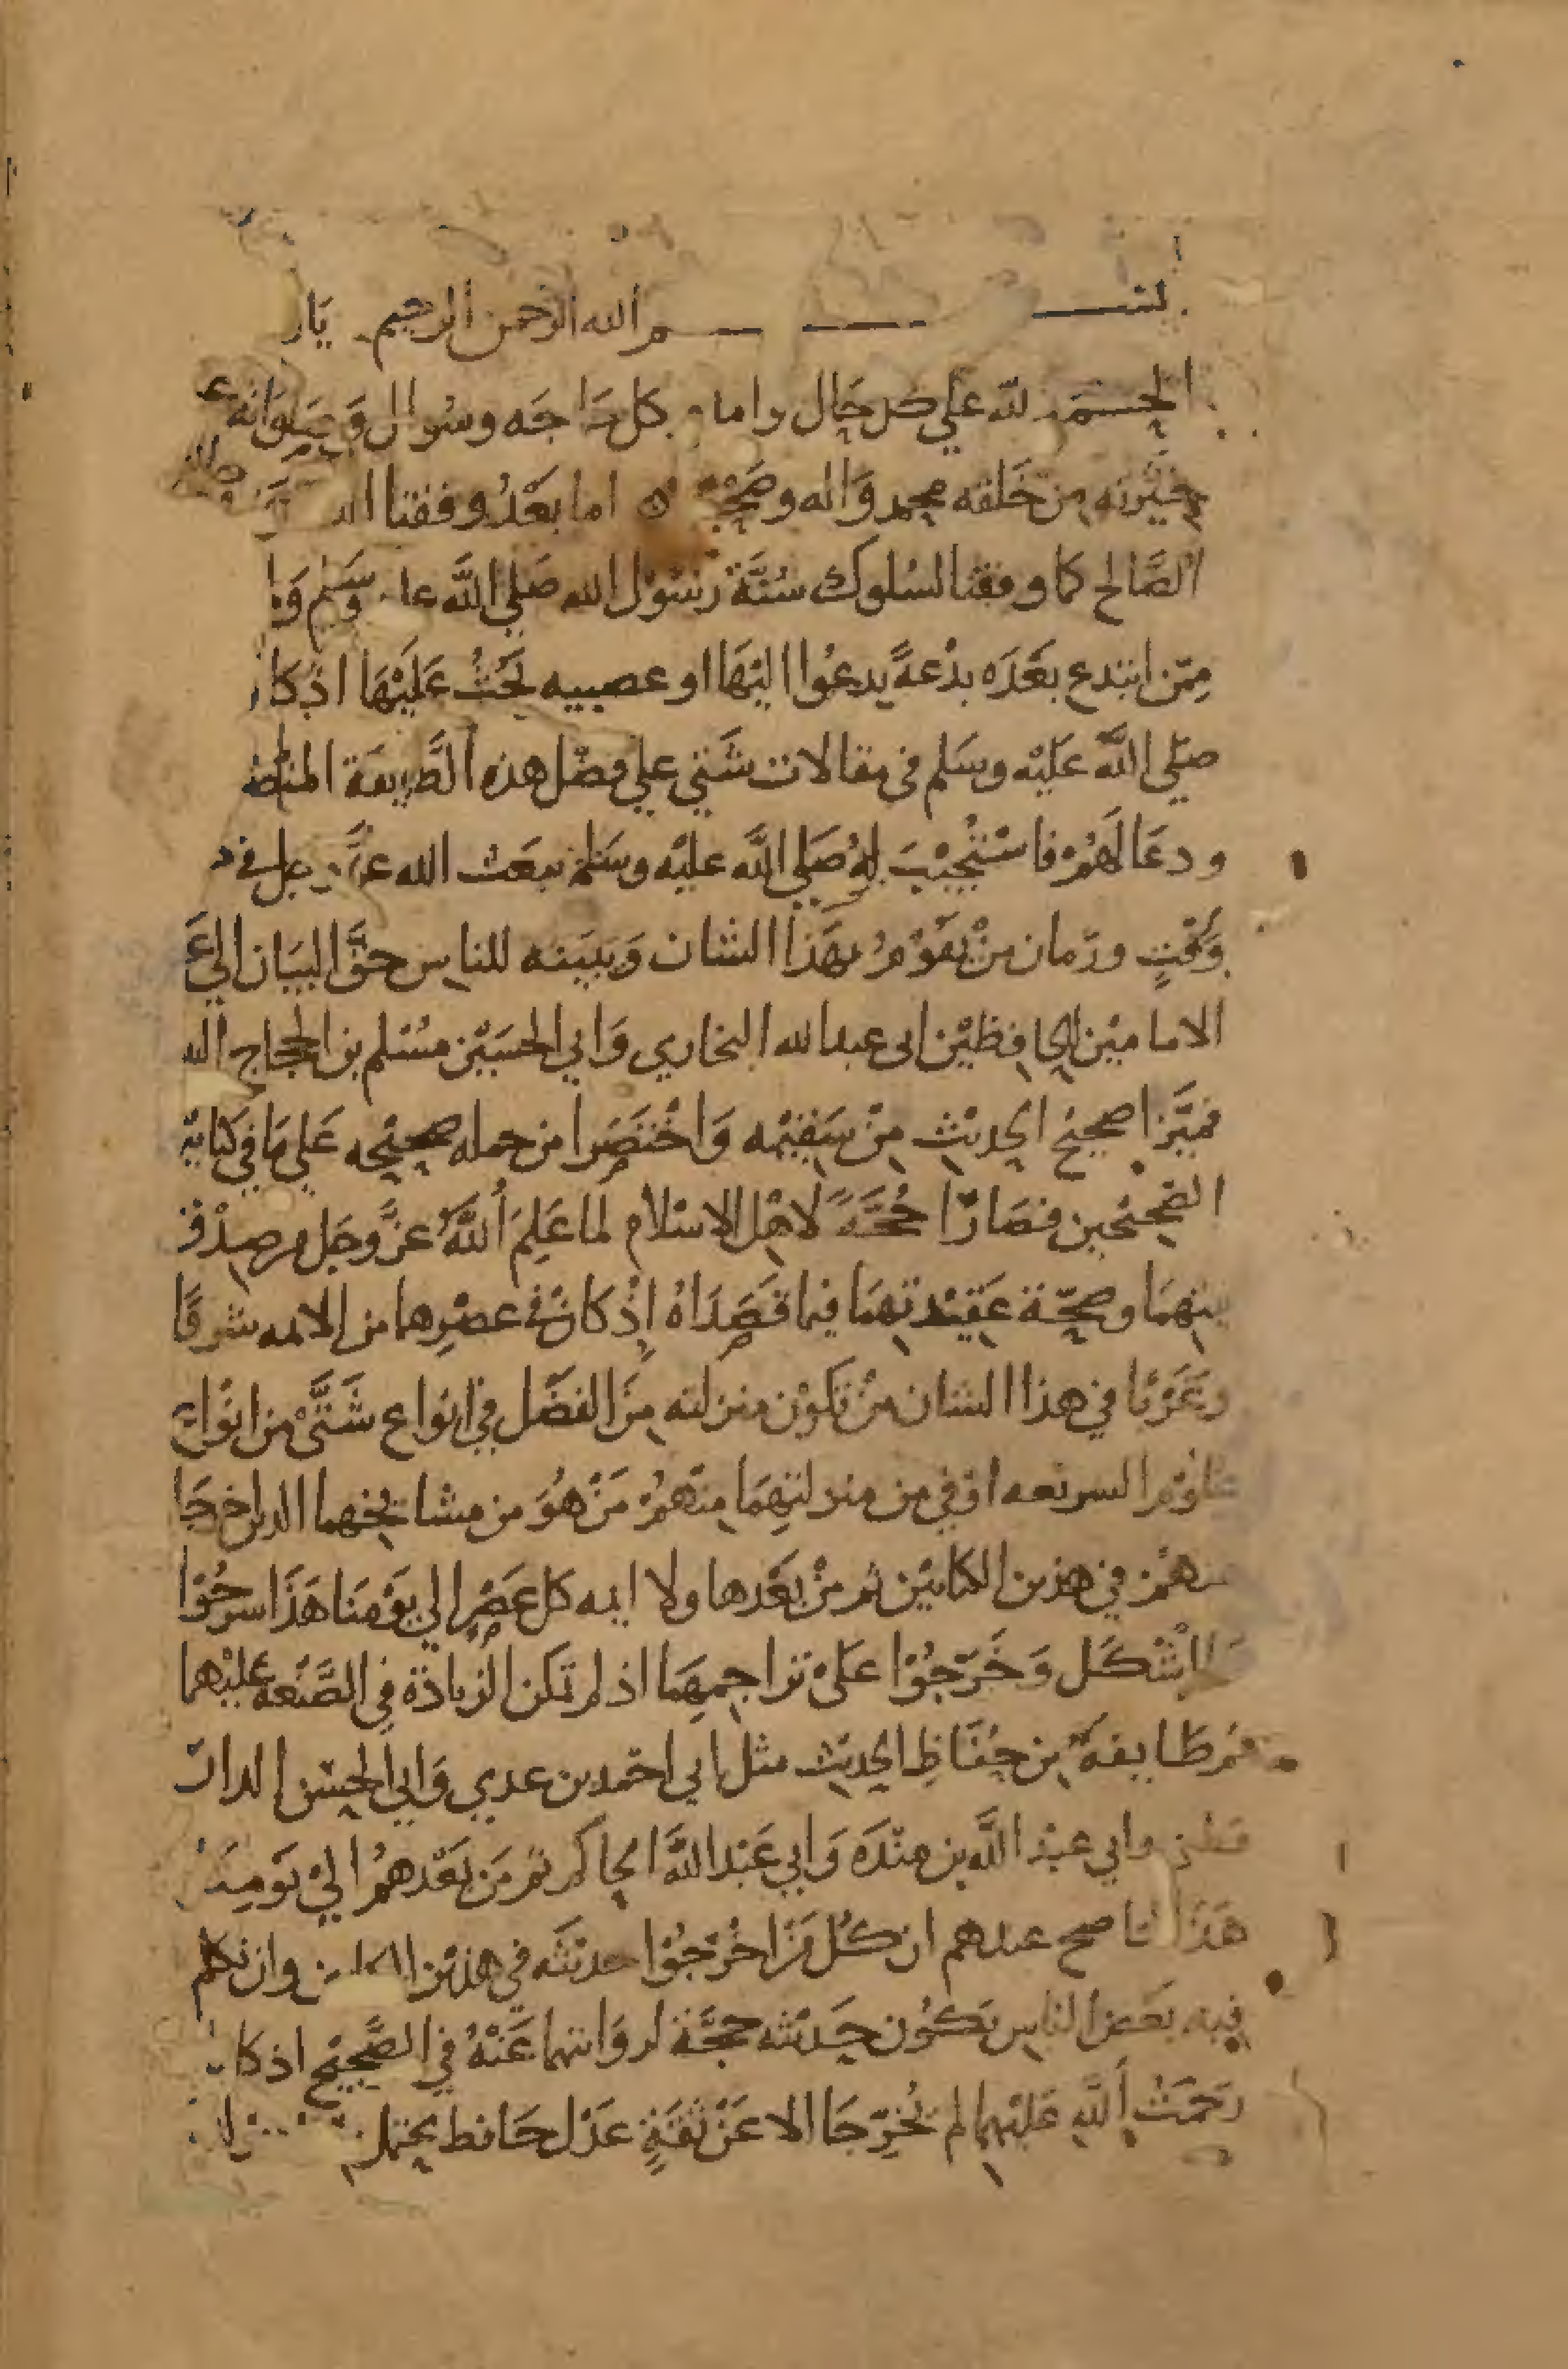 بسم الله الرحمن الرحيم يا
الحمد لله علي كل حال وامام كل حاجه وسوال وصلواته ع
خيرته من خلقه محمد واله وصحبه اما بعد وفقنا الله
الصَّالح كما وفقنا لسلوك سُنَّة رسُول الله صَلي اللَّه وسَلم
مِمّن ابتدع بعَدَه بدْعةً يدعُوا اليْهَا او عصبيه يَحُثُ عَلَيْهَا اذ كا
صلي اللَّه عَليْه وسَلم في مقالات شَتي علي فضْل هذه الطَّريقة
ودعَا لَهُمْ فاسْتُجِيْبَ لهُ صَلي اللَّه عليْه وسَلم يبعَث الله عزَّ وجل في
وَقْتٍ وزمان منْ يقوْمُ بهَذا الشان وَيبيّنه للناس حقَّ البيَان الي
الامامَيْن الحافِظيْن ابى عبدالله البخاري وَابي الحسَيْن مسْلم بن الحجاج
فميَّزا صحيح الحديْث منْ سَقيْمه وَاخْتصَرا من جمله صحيْحه عَلي مَا في كتابيْ
الصَّحيْحين فصَارَا حُجَّةً لاهْل الاسْلام لما عَلِمَ اللَّهُ عَزَّ وجَل من صِدْق
نيتهمَا وصحّة عَقيْدتهمَا فيما قصَدَاهُ اِذْ كانَ في عصْرِهما من الائمه شرقًا
وغَرْبًا في هذا الشان منْ تكوْن منزلته مِنَ الفضْل في انواع شَتَّىْ من انواع
علوْم الشريعه اوفي من منزلتِهِمَا منهمُ مَنْ هُوَ من مشايخهما الذين اخرجَا
عنهمْ في هذين الكتابيْن ثم منْ بعَدهما ولائمه كل عَصْرٍ الي يوْمنَا هَذَا شرحُوْا
مَا اشْكَل وَخَرَّجُوْا عَلىْ تراجمِهِمَا اذ لم تكن الزيادة في الصَّنْعة عَليْهما
منهم طَايفةٌ من حُفّاظ الحديْث مثل ابي احمد بن عدي وَابي الحسَن الدار
قطني وابي عبْد اللَّه بن منْدَه وَابي عَبْد اللَّه الحاكم ثم مَن بَعْدهمُ الىْ يَومِنَا
هَذا لما صح عندهم ان كلّ مَنْ اخْرَجُوْا حديثَه في هذيْن الكتابين وان تكلم
فيه بعَض الناس يَكُون حَديثه حجَّة لروَايتهما عَنْهُ في الصَّحيْح اذ كانا
رحمَتُ اللَّهِ عَليْهما لم يُخرّجَا الا عَنْ ثقةٍ عدْل حَافظ يحتمل